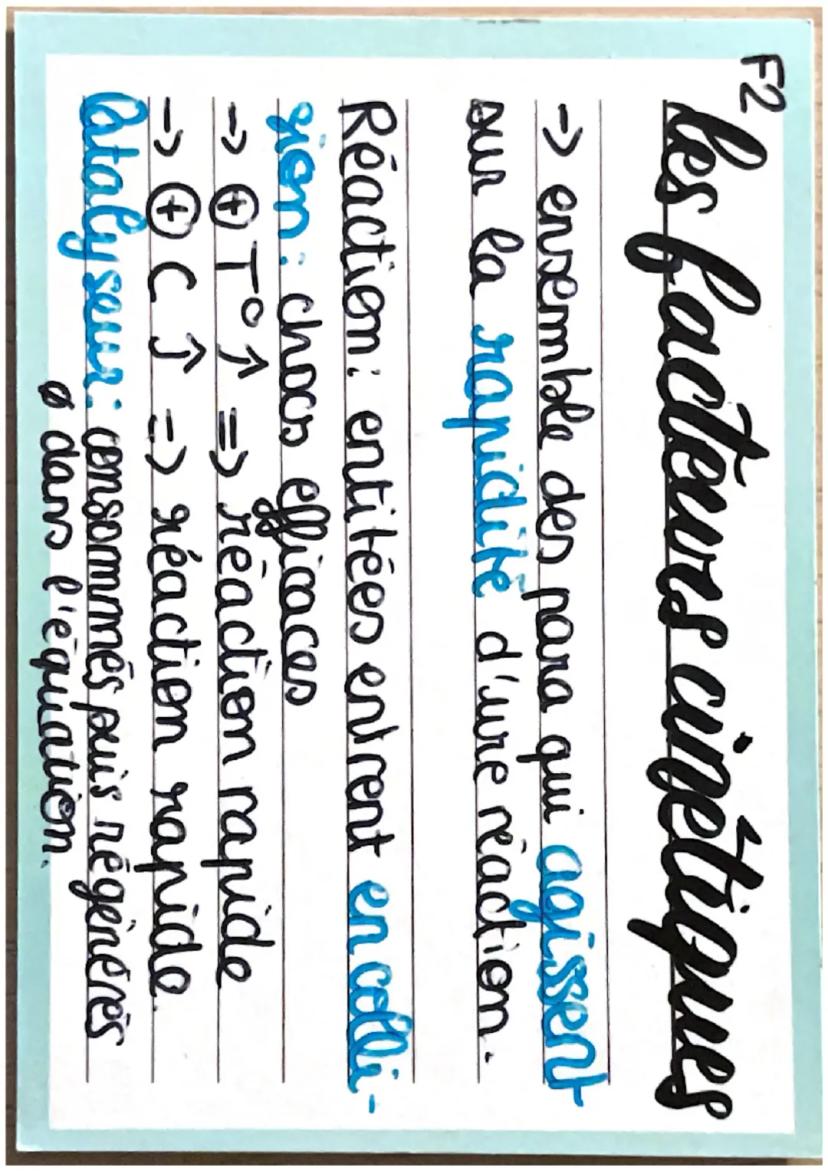 F2
Les facteurs cinétiques
-> ensemble des para qui agissent
sur la rapidité d'une réaction.
Réaction : entitées entrent en colli-
sion : chocs efficaces
-> ⊕ T° ↑ => réaction rapide
-> ⊕ C ↑ => réaction rapide.
Catalyseur : consommés puis régénérés
ø dans l'équation.